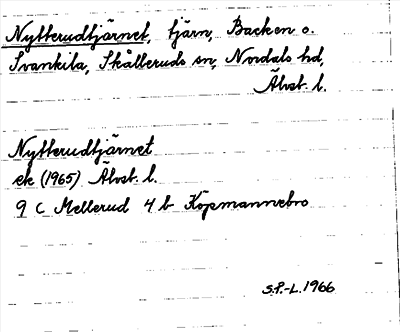 Nytterudtjärnet, tjärn, Backen o.
Svankila, Skålleruds sn, Nordals hd,
Älvsb. l.
Nytterudtjärnet
ek (1965) Älvsb. l.
9 C Mellerud 4 b Köpmannebro
S.P.-L. 1966